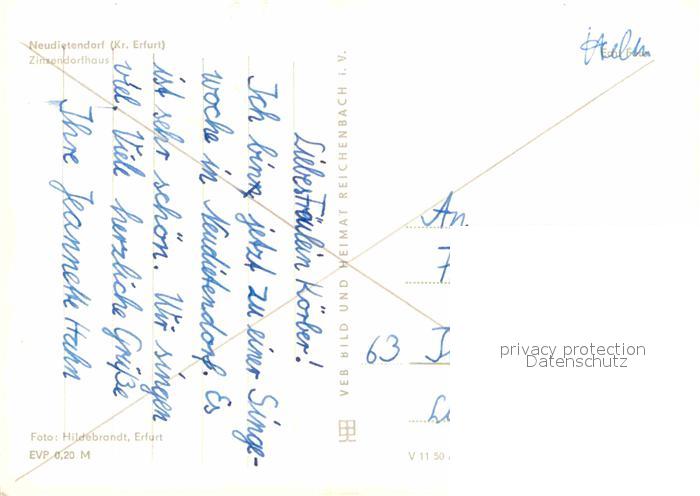 Neudietendorf (Kr. Erfurt)
Zinzendorfhaus
Liebes Fräulein Körber!
Ich bin jetzt zu einer Singe-
woche in Neudietendorf. Es
ist sehr schön. Wir singen
viel. Viele herzliche Grüße
Ihre Jeannette Hahn
VEB BILD UND HEIMAT REICHENBACH i. V.
An
63
privacy protection
Datenschutz
Foto: Hildebrandt, Erfurt
EVP 0,20 M
V 11 50